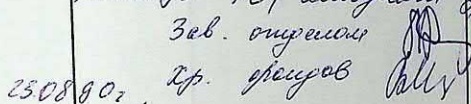 Зав. отделом
Хр. фондов
23.08.90г.